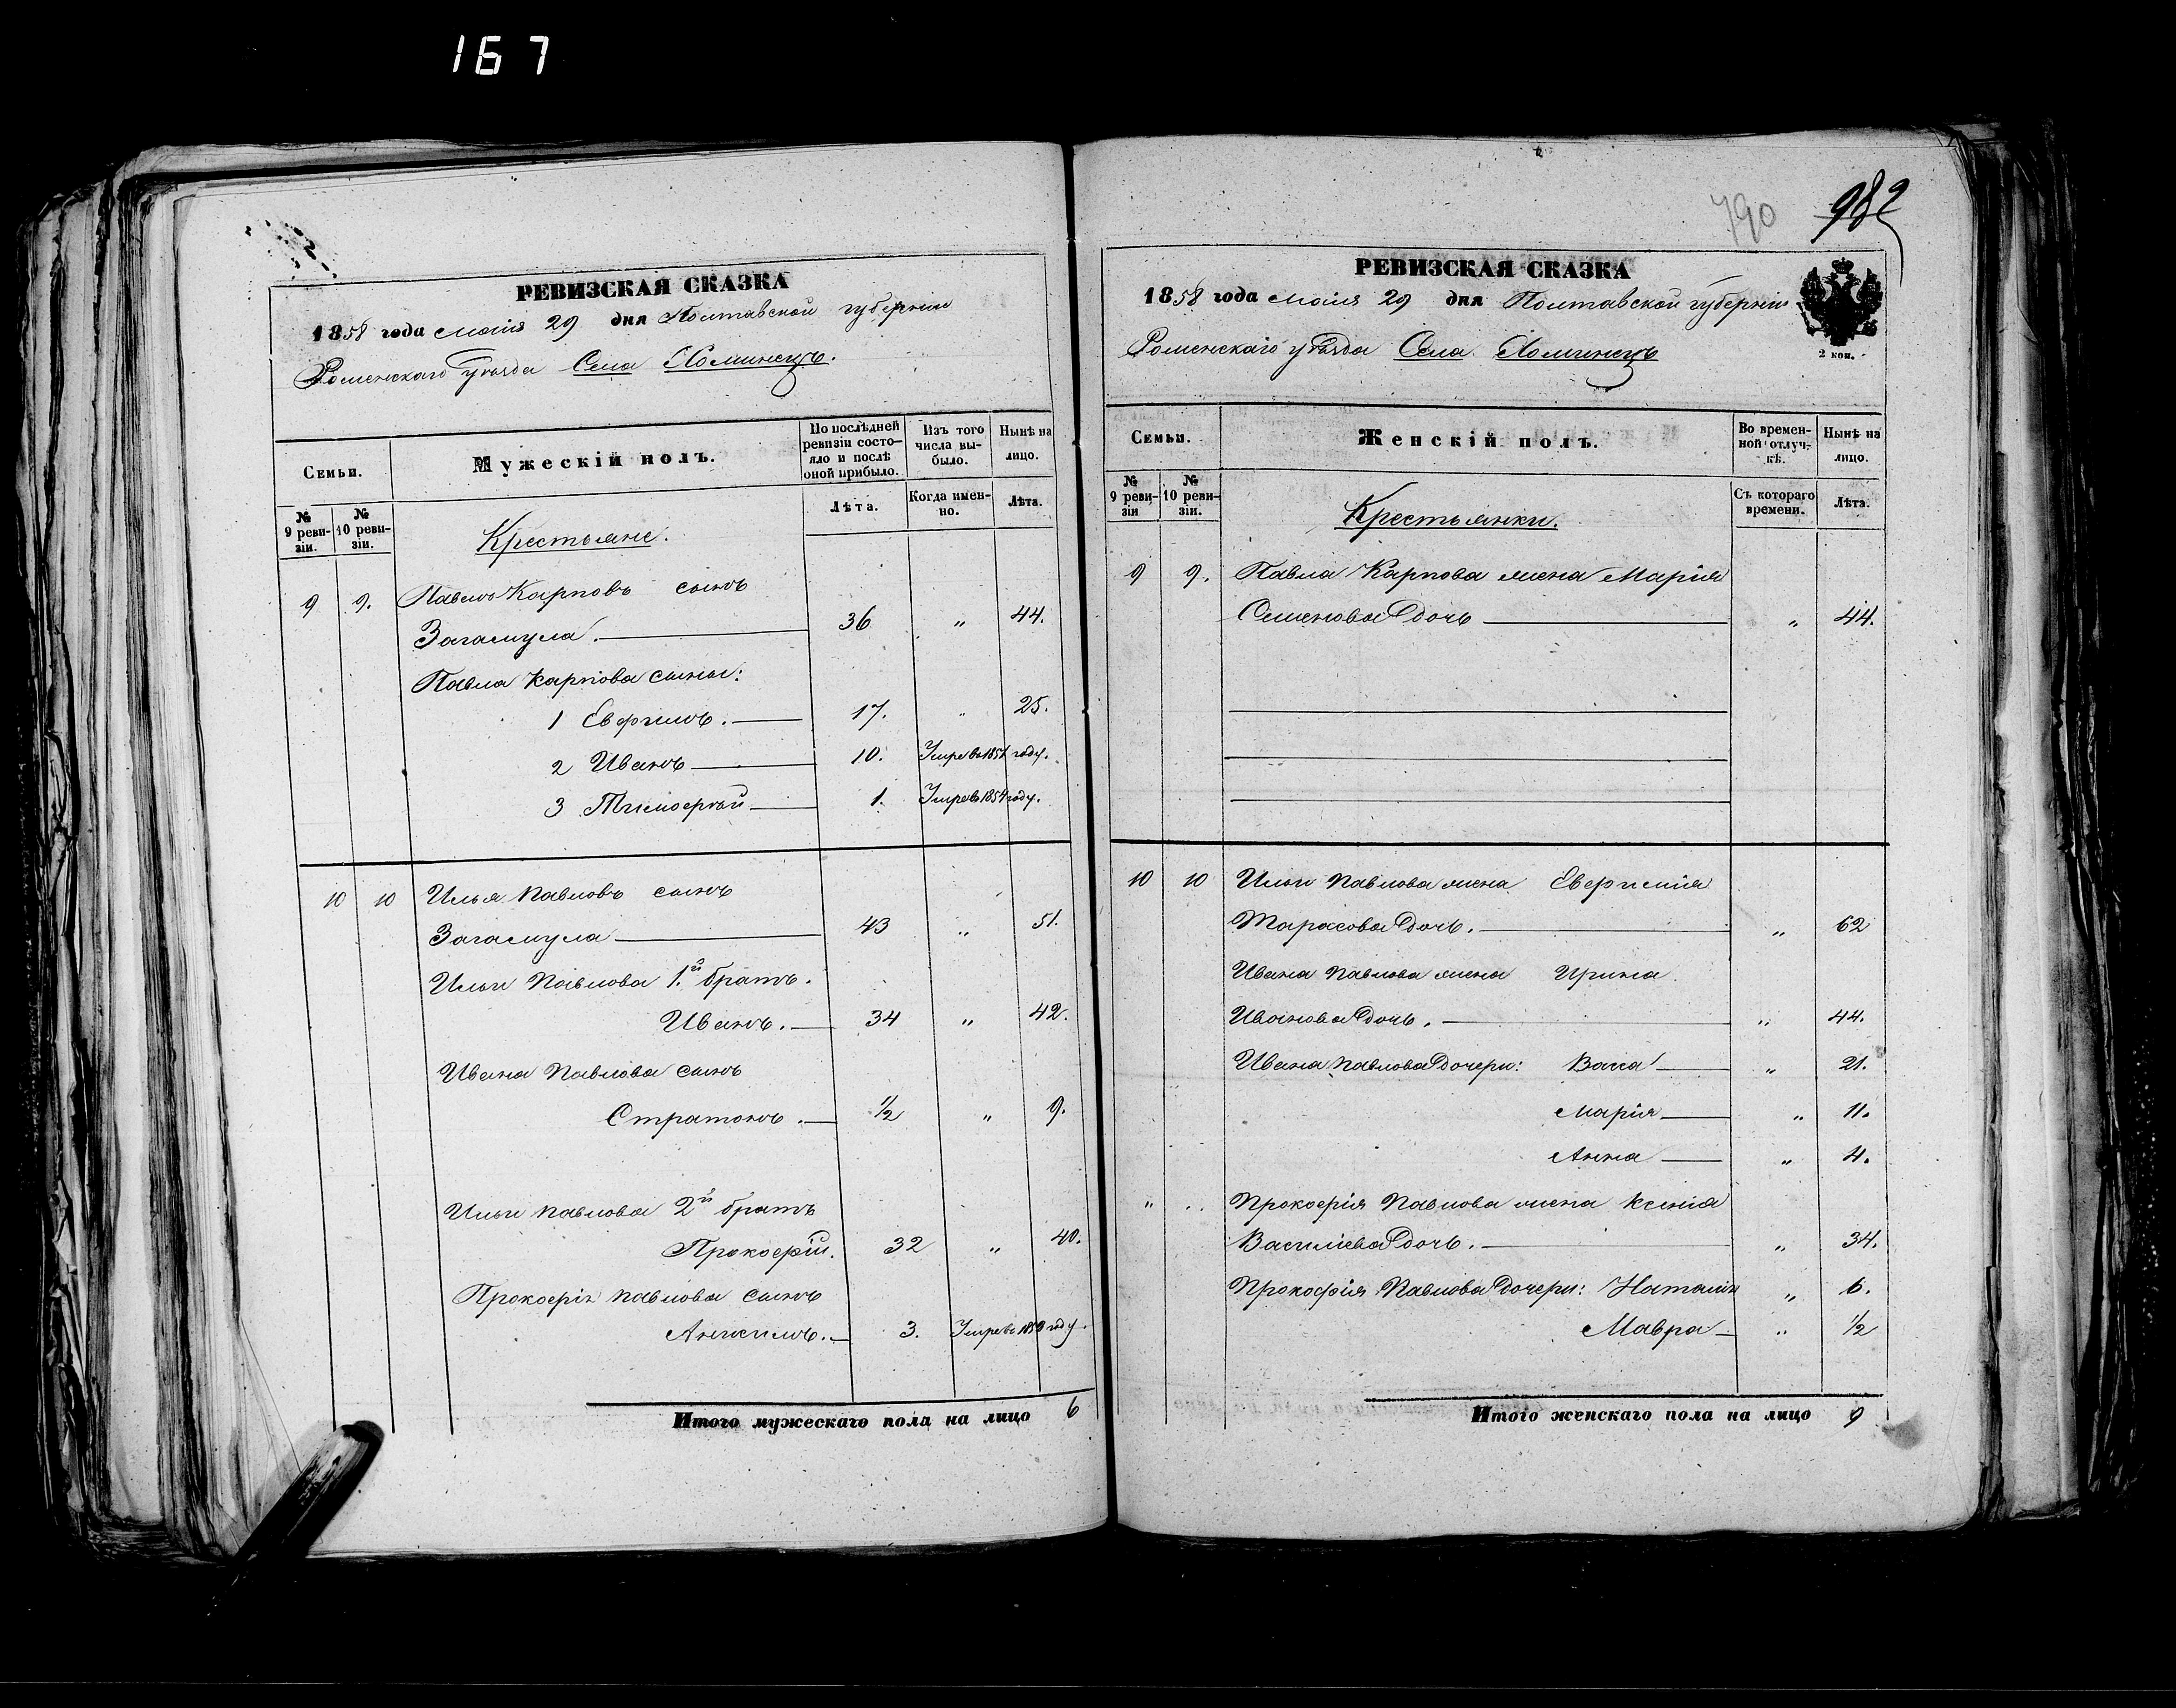 167
790 982
РЕВИЗСКАЯ СКАЗКА
1858 года маія 29 дня Полтавской губерніи
Роменскаго уѣзда Села Хоминецъ.
Семьи.
Мужескій полъ.
По послѣдней ревизіи состояло и послѣ оной прибыло.
Изъ того числа выбыло.
Нынѣ на лицо.
№ 9 ревизіи.
№ 10 ревизіи.
Лѣта.
Когда именно.
Лѣта.
Крестьяне.
9 9. Павелъ Карповъ сынъ
Загамула. 36 „ 44.
Павла Карпова сыны:
1 Евфимъ. 17. „ 25.
2 Иванъ 10. Умре въ 1851 году.
3 Тимофѣй 1. Умре въ 1854 году.
10 10 Илья Павловъ сынъ
Загамула 43 „ 51.
Ильи Павлова 1.й братъ.
Иванъ. 34 „ 42.
Ивана Павлова сынъ
Стратонъ. 1/2 „ 9.
Ильи Павлова 2й братъ
Прокофій. 32 „ 40.
Прокофія Павлова сынъ
3. Умре въ году.
Итого мужескаго пола на лицо 6
РЕВИЗСКАЯ СКАЗКА
1858 года маія 29 дня Полтавской губерніи
Роменскаго уѣзда Села Хоминецъ
2 коп.
Семьи.
Женскій полъ.
Во временной отлучкѣ.
Нынѣ на лицо.
№ 9 ревизіи
№ 10 ревизіи.
Съ котораго времени.
Лѣта.
Крестьянки.
9 9. Павла Карпова жена Марія
Семенова дочь „ 44.
10 10 Ильи Павлова жена Евфимія
Тарасова дочь. „ 62
Ивана Павлова жена Ирина
Иванова дочь. „ 44.
Ивана Павлова дочери: Васса „ 21.
Марія „ 11.
Анна „ 4.
„ „ Прокофія Павлова жена Ксенія
Василіева дочь. „ 34.
Прокофія Павлова дочери: Наталія „ 6.
Мавра „ 1/2
Итого женскаго пола на лицо 9